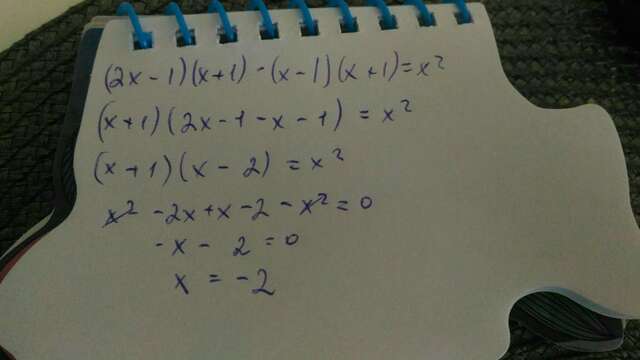 (2x-1)(x+1)-(x-1)(x+1)=x²
(x+1)(2x-1-x-1)=x²
(x+1)(x-2)=x²
x²-2x+x-2-x²=0
-x-2=0
x=-2